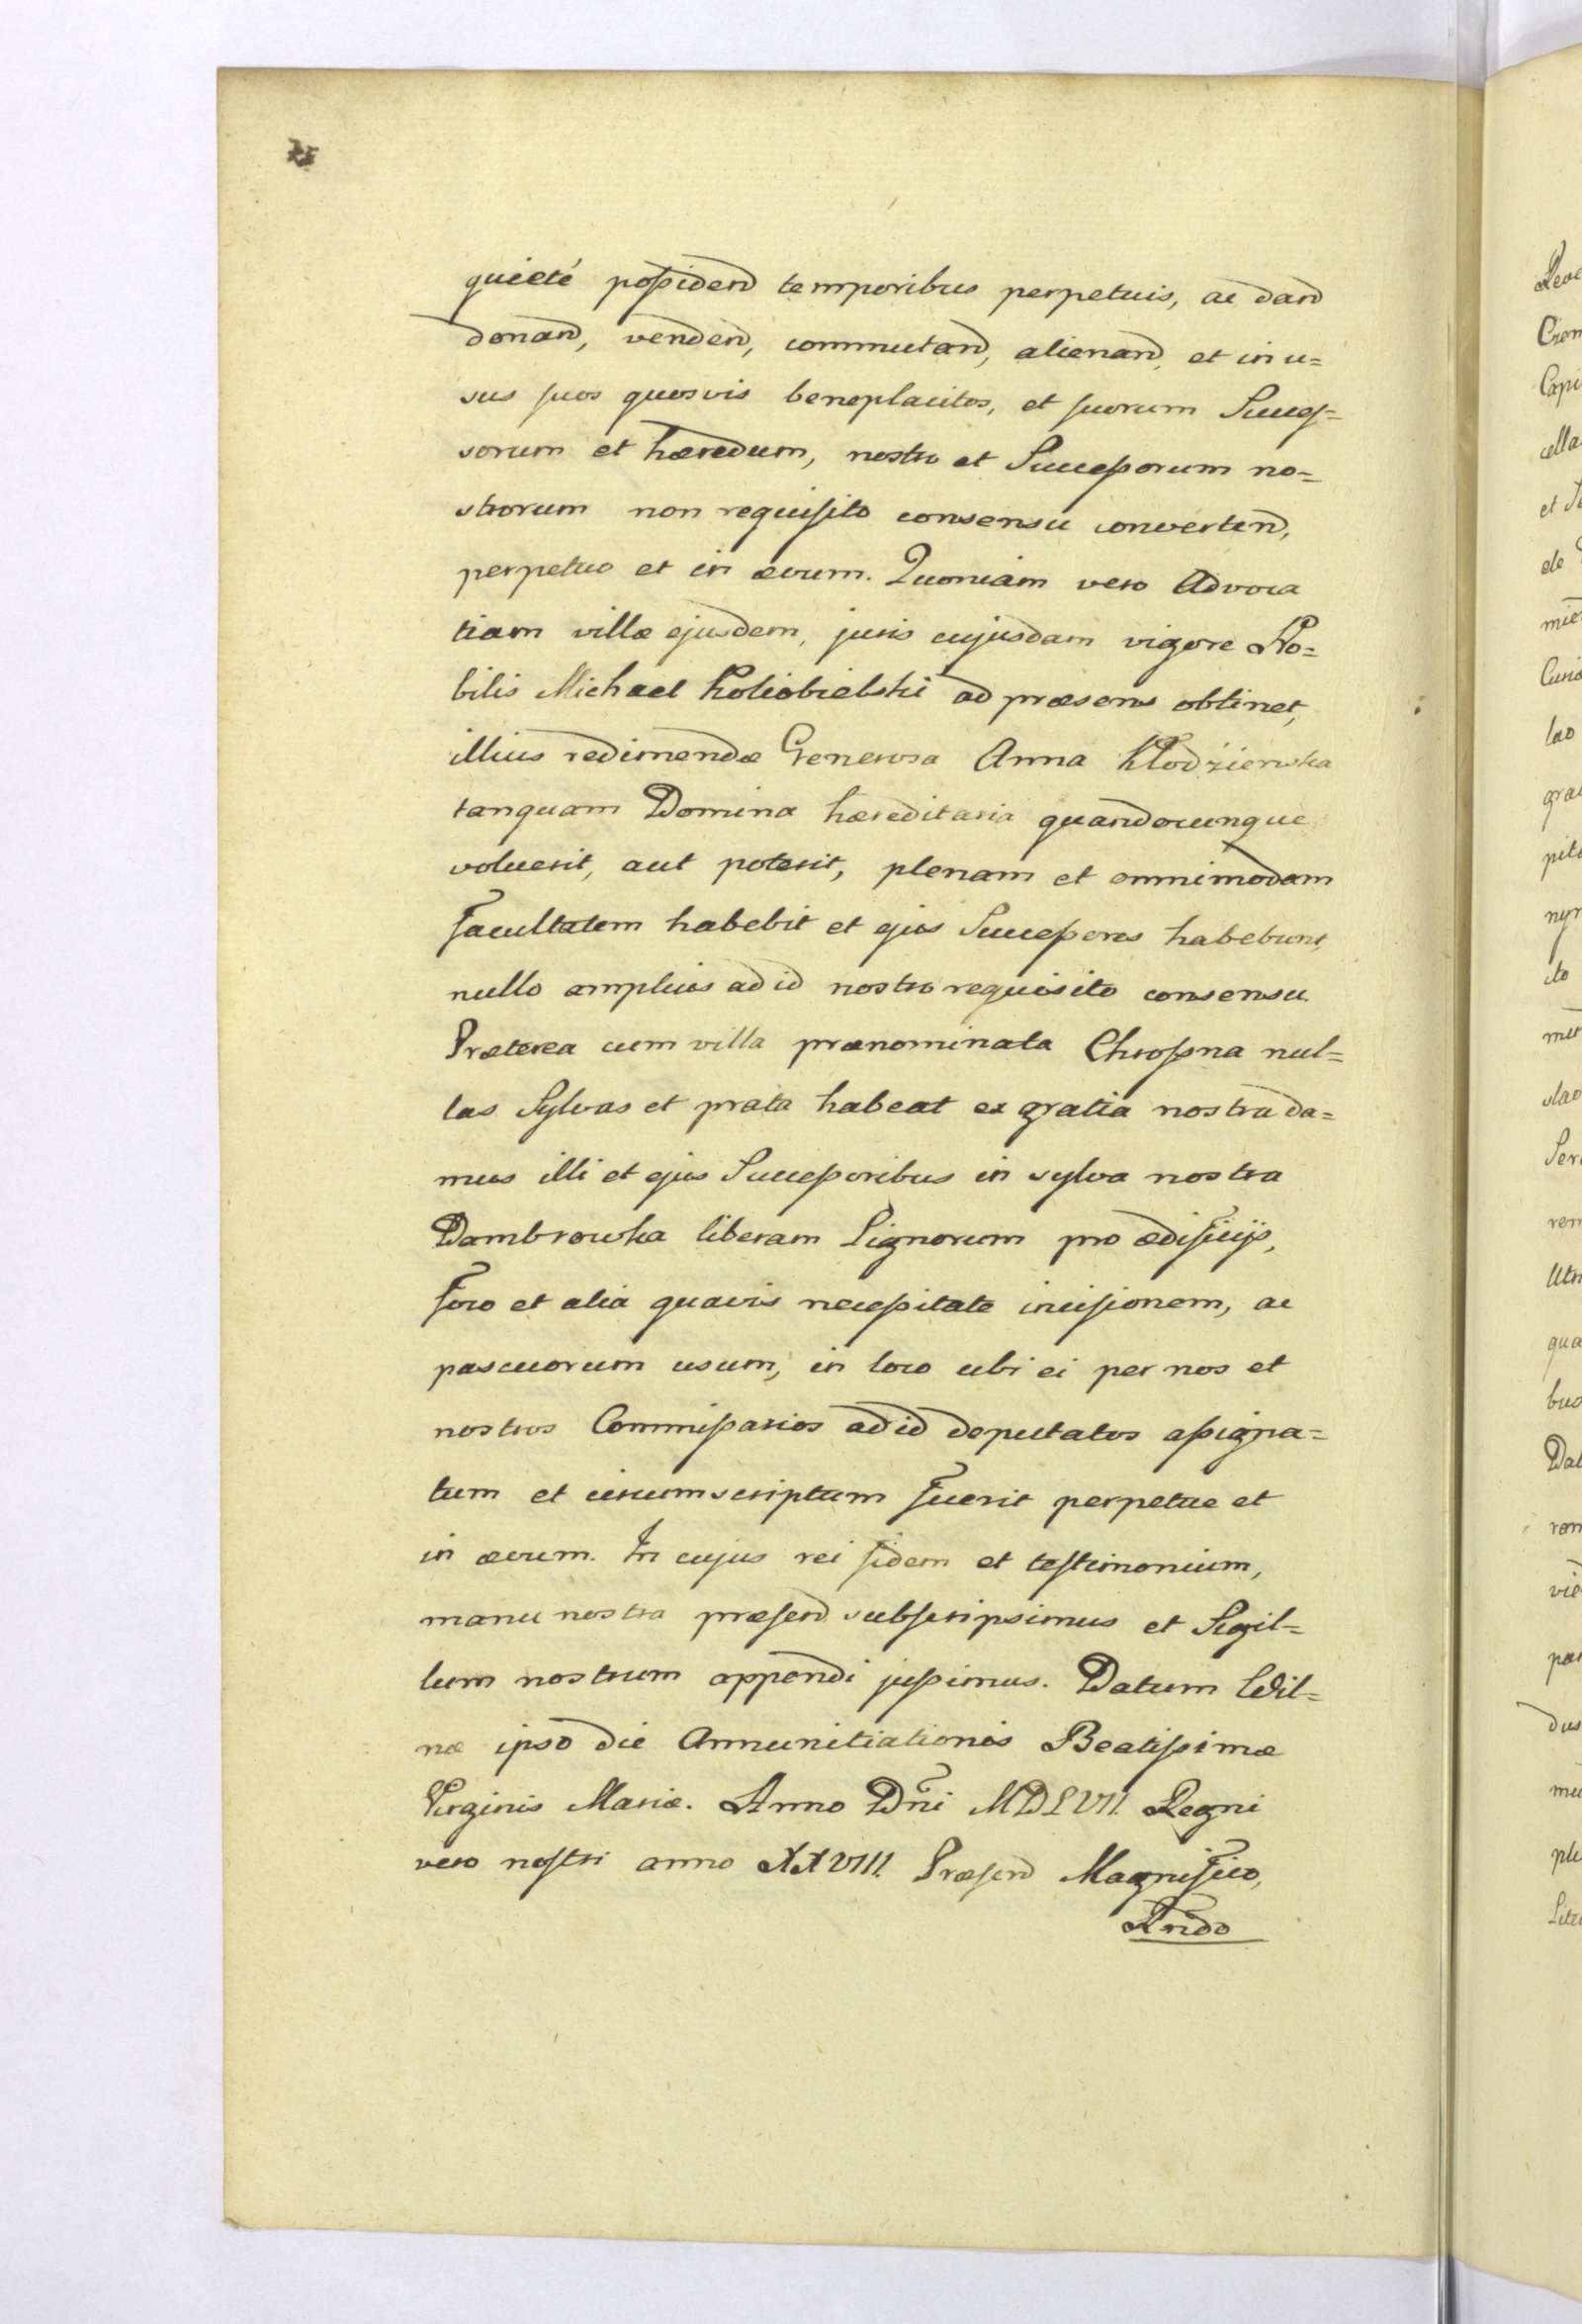 quieté possidend temporibus perpetuis, ac dand
donand, vendend, commutand, alienand, et in u=
sus suos quosvis beneplacitos, et suorum Succes=
sorum et hæredum, nostro et Successorum no=
strorum non requisito consensu convertend,
perpetuo et in ævum. Quoniam vero Advoca
tiam villæ ejusdem, juris cujusdam vigore No=
bilis Michael Koliobielski ad præsens obtinet,
illius redimendæ Generosa Anna Kłodzienska
tanquam Domina hæreditaria quandocunque
voluerit, aut poterit, plenam et omnimodam
facultatem habebit et ejus Successores habebunt,
nullo amplius ad id nostro requisito consensu.
Præterea cum villa prænominata Chrosna nul=
las Sylvas et prata habeat ex gratia nostra da=
mus illi et ejus Successoribus in sylva nostra
Dambrowka liberam Lignorum pro ædificijs,
foco et alia quavis necessitate incisionem, ac
pascuorum usum, in loco ubi ei per nos et
nostros Commissarios ad id deputatos assigna=
tum et circumscriptum fuerit perpetue et
in ævum. In cujus rei fidem et testimonium,
manu nostra præsend subscripsimus et Sigil=
lum nostrum appendi jussimus. Datum Wil=
næ ipso die Annunitiationis Beatissimæ
Virginis Mariæ. Anno Dn̄i MDLVII. Regni
vero nostri anno XXVIII. Præsend Magnifico,